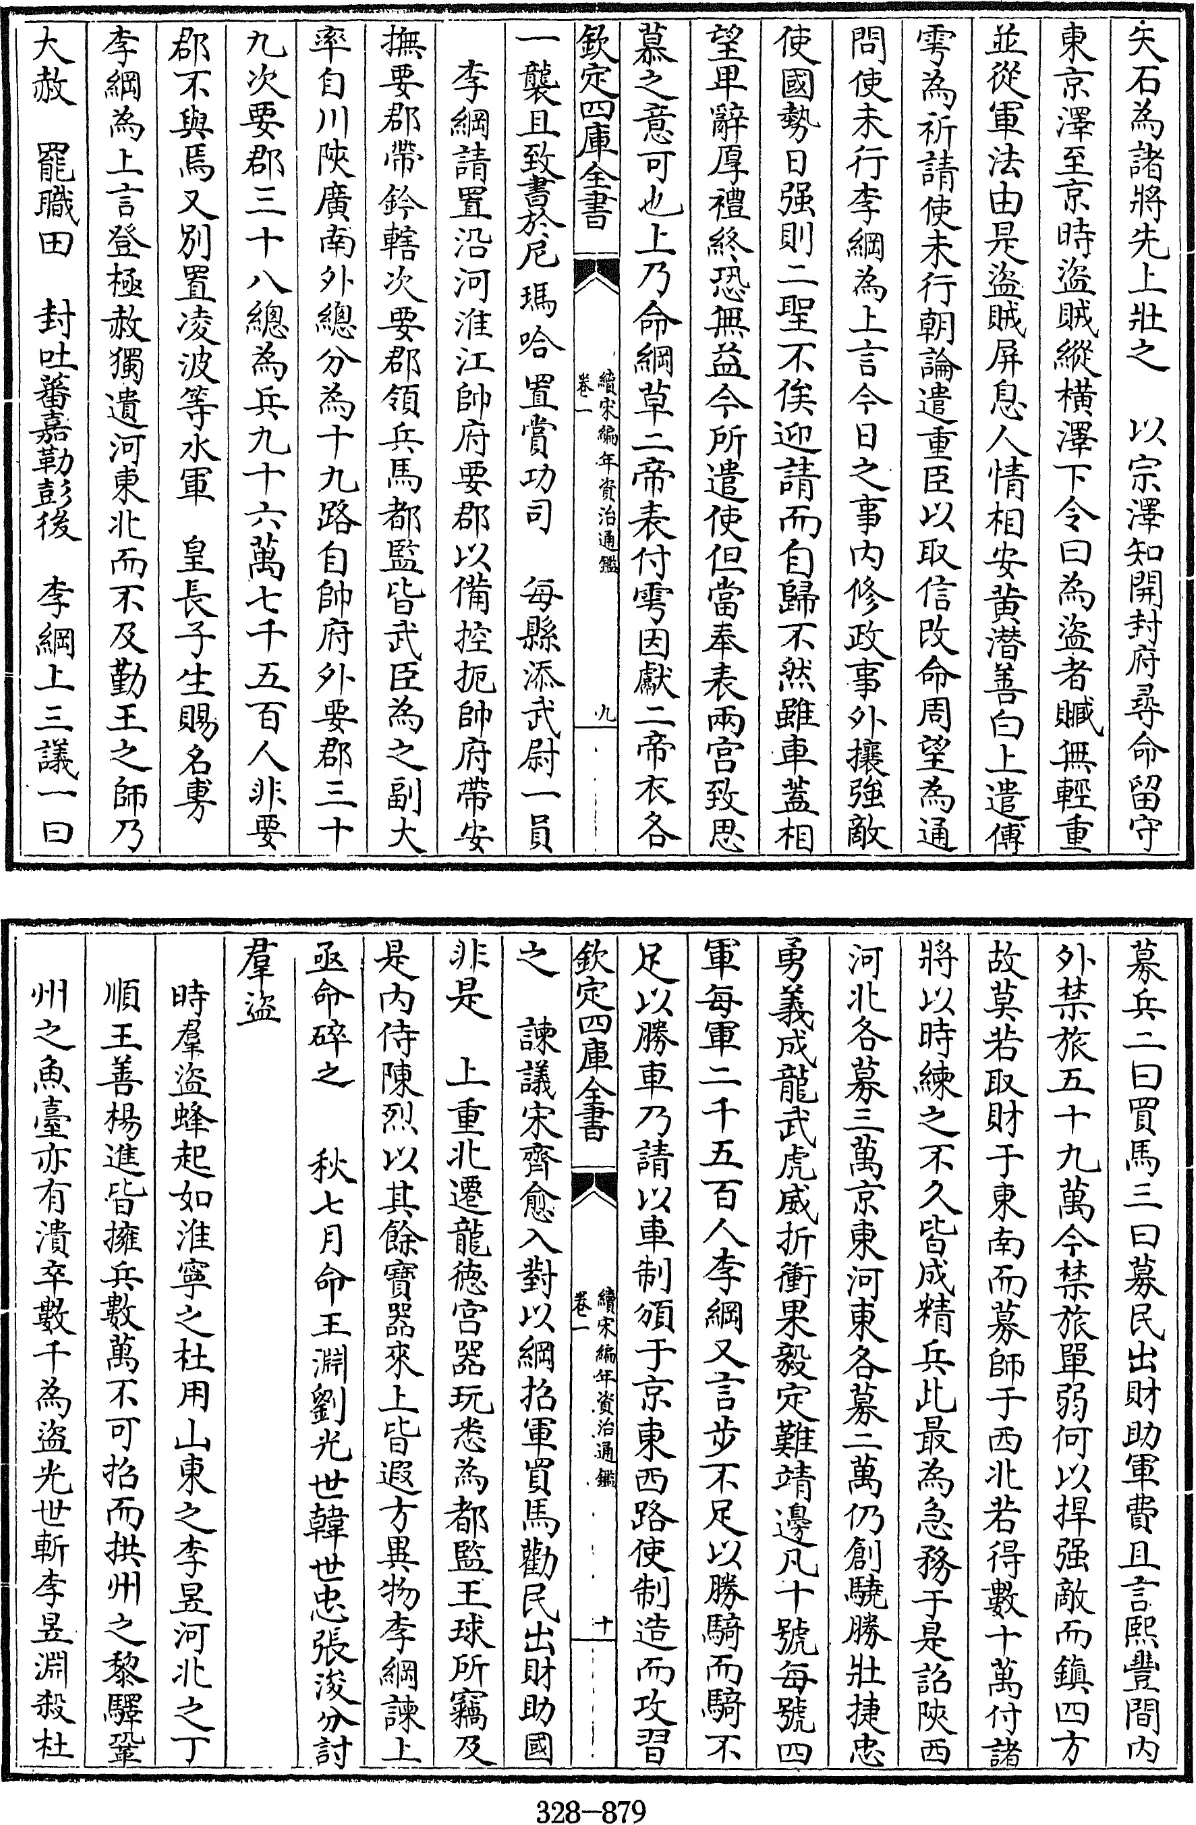 矢石為諸將先上壯之　以宗澤知開封府尋命留守
東京澤至京時盜賊縱橫澤下令曰為盜者贓無輕重
並從軍法由是盜賊屏息人情相安黄潛善白上遣傅
雱為祈請使未行朝論遣重臣以取信改命周望為通
問使未行李綱為上言今日之事内修政事外攘強敵
使國勢日强則二聖不俟迎請而自歸不然雖車蓋相
望卑辭厚禮終恐無益今所遣使但當奉表兩宫致思
慕之意可也上乃命綱草二帝表付雱因獻二帝衣各
欽定四庫全書
續宋編年資治通鑑
卷一
九
一襲且致書於尼瑪哈置賞功司　每縣添武尉一員
李綱請置沿河淮江帥府要郡以備控扼帥府帶安
撫要郡帶鈐轄次要郡領兵馬都監皆武臣為之副大
率自川陜廣南外總分為十九路自帥府外要郡三十
九次要郡三十八總為兵九十六萬七千五百人非要
郡不與焉又别置凌波等水軍　皇長子生賜名旉
李綱為上言登極赦獨遺河東北而不及勤王之師乃
大赦　罷職田　封吐蕃嘉勒彭後　李綱上三議一曰
募兵二曰買馬三曰募民出財助軍費且言熙豐間内
外禁旅五十九萬今禁旅單弱何以捍强敵而鎮四方
故莫若取財于東南而募師于西北若得數十萬付諸
將以時練之不久皆成精兵此最為急務于是詔陜西
河北各募三萬京東河東各募二萬仍創驍勝壯捷忠
勇義成龍武虎威折衝果毅定難靖邊凡十號每號四
軍每軍二千五百人李綱又言步不足以勝騎而騎不
足以勝車乃請以車制頒于京東西路使制造而攻習
欽定四庫全書
續宋編年資治通鑑
卷一
十
之　諫議宋齊愈入對以綱招軍買馬勸民出財助國
非是　上重北遷龍德宫器玩悉為都監王球所竊及
是内侍陳烈以其餘寶器來上皆遐方異物李綱諫上
亟命碎之　秋七月命王淵劉光世韓世忠張浚分討
羣盜
時羣盜蜂起如淮寧之杜用山東之李昱河北之丁
順王善楊進皆擁兵數萬不可招而拱州之黎驛鞏
州之魚臺亦有潰卒數千為盜光世斬李昱淵殺杜
328-879